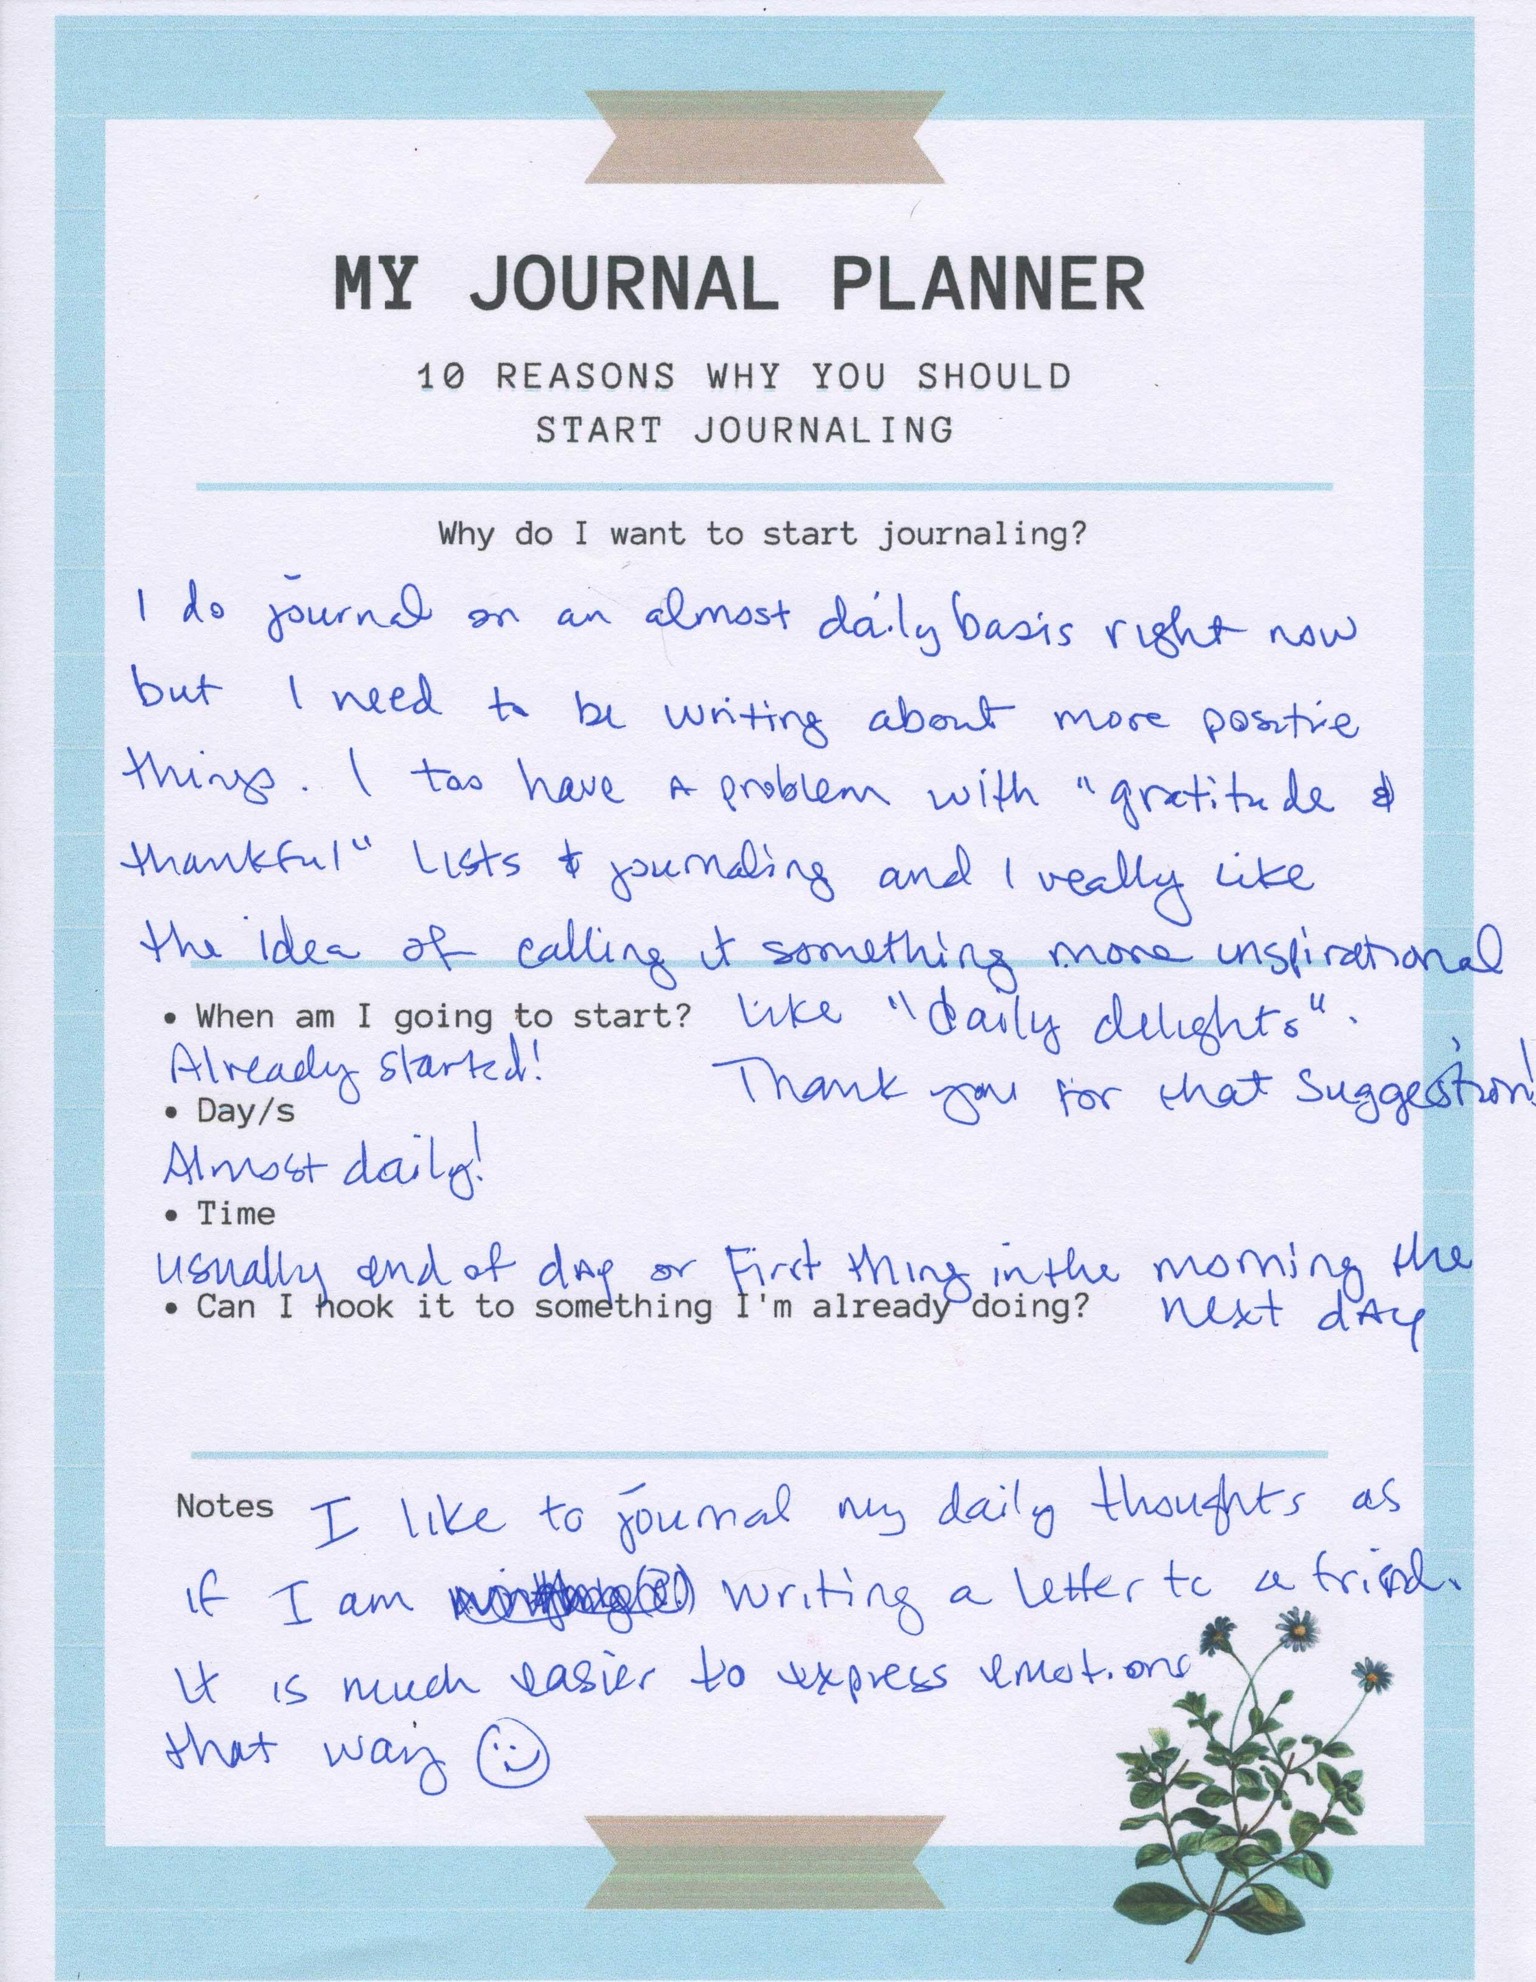 MY JOURNAL PLANNER
10 REASONS WHY YOU SHOULD
START JOURNALING
Why do I want to start journaling?
I do journal on an almost daily basis right now
but I need to be writing about more positive
things. I too have A problem with "gratitude &
thankful" Lists & journaling and I really like
the idea of calling it something more inspirational
like "daily delights".
Thank you for that Suggestion!
• When am I going to start?
Already started!
• Day/s
Almost daily!
• Time
usually end of dAy or First thing in the morning the
next dAy
• Can I hook it to something I'm already doing?
Notes I like to journal my daily thoughts as
if I am writing a letter to a friend.
It is much easier to express emotions
that way